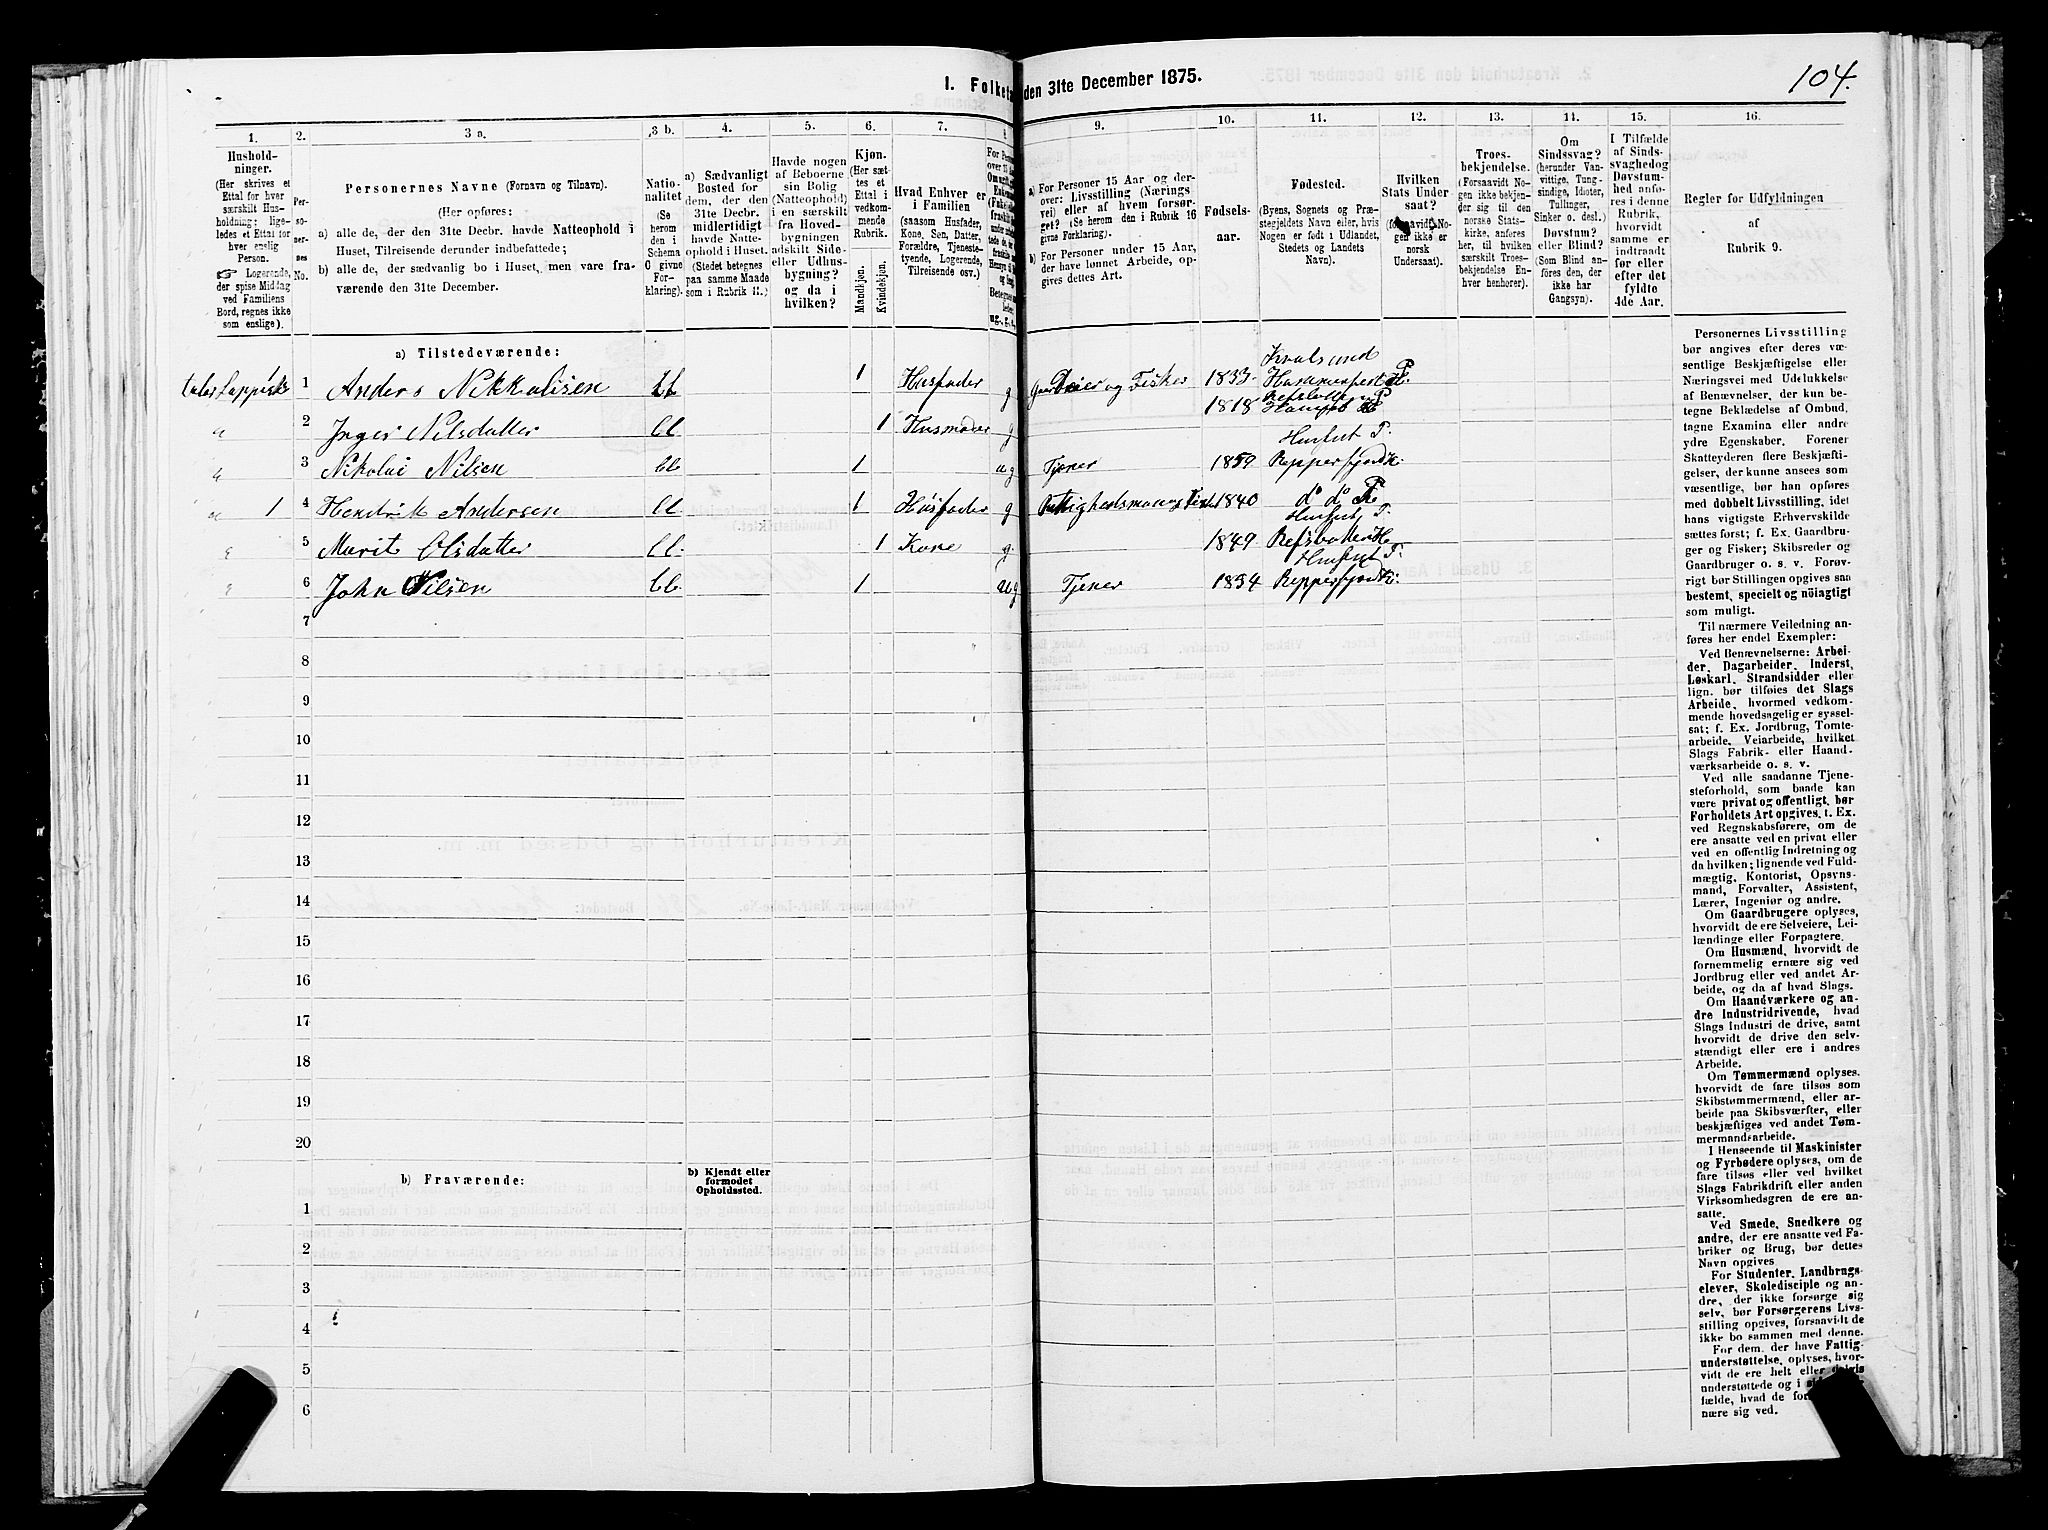 I. Folketæ den 31te December 1875.
104.
1.
2.
3 a.
3 b.
4.
5.
6.
7.
8
9.
10.
11.
12.
13.
14.
15.
16.
Hushold-
ninger.
(Her skrives et
Ettal for hver
særskilt Hus-
holdning; lige-
ledes et Ettal for
hver enslig
Person.
☞ Logerende,
der spise Middag
ved Familiens
Bord, regnes ikke
som enslige).
Per-
so-
ner-
nes
No.
Personernes Navne (Fornavn og Tilnavn).
(Her opføres:
a) alle de, der den 31te Decbr. havde Natteophold i
Huset, Tilreisende derunder indbefattede;
b) alle de, der sædvanlig bo i Huset, men vare fra-
værende den 31te December.
Natio-
nalitet
(Se
herom
den i
Schema
C givne
For-
klaring).
a) Sædvanligt
Bosted for
dem, der den
31te Decbr.
midlertidigt
havde Natte-
ophold i Huset.
(Stedet betegnes
paa samme Maade
som i Rubrik 11.)
Havde nogen
af Beboerne
sin Bolig
(Natteophold)
i en særskilt
fra Hoved-
bygningen
adskilt Side-
eller Udhus-
bygning?
og da i
hvilken?
Kjøn.
(Her sæt-
tes et
Ettal i
vedkom-
mende
Rubrik.
Mandkjøn.
Kvindekjøn.
Hvad Enhver er
i Familien
(saasom Husfader,
Kone, Søn, Datter,
Forældre, Tjeneste-
tyende, Logerende,
Tilreisende osv.)
For Person
ug., g.,
a) For Personer 15 Aar og der-
over: Livsstilling (Nærings
vei) eller af hvem forsør-
get? (Se herom den i Rubrik 16
givne Forklaring).
b) For Personer under 15 Aar,
der have lønnet Arbeide, op-
gives dettes Art.
Fødsels-
aar.
Fødested.
(Byens, Sognets og Præ-
stegjeldets Navn eller, hvis
Nogen er født i Udlandet,
Stedets og Landets
Navn).
Hvilken
Stats Under-
saat?
(forsaavidt No-
gen ikke er
norsk
Undersaat).
Troes-
bekjendelse.
(Forsaavidt No-
gen ikke bekjen-
der sig til den
norske Stats-
kirke, anføres
her, til hvilken
særskilt Troes-
bekjendelse En-
hver henhører).
Om
Sindssvag?
(herunder Van-
vittige, Tung-
sindige, Idioter,
Tullinger,
Sinker o. desl.)
Døvstum?
eller Blind?
(Som Blind an-
føres den, der
ikke har
Gangsyn).
I Tilfælde
af Sinds-
svaghedog
Døvstum-
hed anfø-
res i denne
Rubrik,
hvorvidt
samme er
indtraadt
før eller
efter det
fyldte
4de Aar.
Regler for Udfyldningen
af
Rubrik 9.
a) Tilstedeværende:
1 Anders Nikkolisen 1 Husfader g Gaardeier og Fisker 1833 Kvalsund
Hammerfest P.
2 Inger Nilsdatter 1 Husmoder g 1818
3 Nikolai Nilsen 1 ug Tjener 1859 Repperfjord
1 4 Hendrik Andersen 1 Husfader g 1840 do do
5 Marit Olsdatter 1 Kone g. 1849 Refsbotten
6 John Nilsen 1 ug Tjener 1834 Repperfjord
7
8
9
10
11
12
13
14
15
16
17
18
19
20
b) Fraværende:
b) Kjendt eller
formodet
Opholdssted.
1
2
3
4
5
6
Personernes Livsstilling
bør angives efter deres væ-
sentlige Beskjæftigelse eller
Næringsvei med Udelukkelse
af Benævnelser, der kun be-
tegne Beklædelse af Ombud,
tagne Examina eller andre
ydre Egenskaber. Forener
Skatteyderen flere Beskjæfti-
gelser, der kunne ansees som
væsentlige, bør han opføres
med dobbelt Livsstilling, idet
hans vigtigste Erhvervskilde
sættes først; f. Ex. Gaardbru-
ger og Fisker; Skibsreder og
Gaardbruger o. s. v. Forøv-
rigt bør Stillingen opgives saa
bestemt, specielt og nöiagtigt
som muligt.
Til nærmere Veiledning an-
føres her endel Exempler:
Ved Benævnelserne: Arbei-
der, Dagarbeider, Inderst,
Løskarl, Strandsidder eller
lign. bør tilføies det Slags
Arbeide, hvormed vedkom-
mende hovedsagelig er syssel-
sat; f. Ex. Jordbrug, Tomte-
arbeide, Veiarbeide, hvilket
Slags Fabrik- eller Haand-
værksarbeide o. s. v.
Ved alle saadanne Tjene-
steforhold, som baade kan
være privat og offentligt, bør
Forholdets Art opgives, t. Ex.
ved Regnskabsførere, om de
ere ansatte ved en privat eller
ved en offentlig Indretning og
da hvilken; lignende ved Fuld-
mægtig, Kontorist, Opsyns-
mand, Forvalter, Assistent,
Lærer, Ingeniør og andre.
Om Gaardbrugere oplyses,
hvorvidt de ere Selveiere, Lei-
lændinge eller Forpagtere.
Om Husmænd, hvorvidt de
fornemmelig ernære sig ved
Jordbrug eller ved andet Ar-
beide, og da af hvad Slags.
Om Haandværkere og an-
dre Industridrivende, hvad
Slags Industri de drive, samt
hvorvidt de drive den selv-
stændigt eller ere i andres
Arbeide.
Om Tømmermænd oplyses,
hvorvidt de fare tilsøs som
Skibstømmermænd, eller ar-
beide paa Skibsværfter, eller
beskjæftiges ved andet Tøm-
mermandsarbeide.
I Henseende til Maskinister
og Fyrbødere oplyses, om de
fare tilsøs eller ved hvilket
Slags Fabrikdrift eller anden
Virksomhedsgren de ere an-
satte.
Ved Smede, Snedkere og
andre, der ere ansatte ved Fa-
briker og Brug, bør dettes
Navn opgives
For Studenter, Landbrugs-
elever, Skoledisciple og an-
dre, der ikke forsørge sig
selv, bør Forsørgerens Livs-
stilling opgives, forsaavidt de
ikke bo sammen med denne.
For dem, der have Fattig-
understøttelse, oplyses, hvor-
vidt de ere helt eller delvis
understøttede og i
fælde, hvad de
nære sig ved.